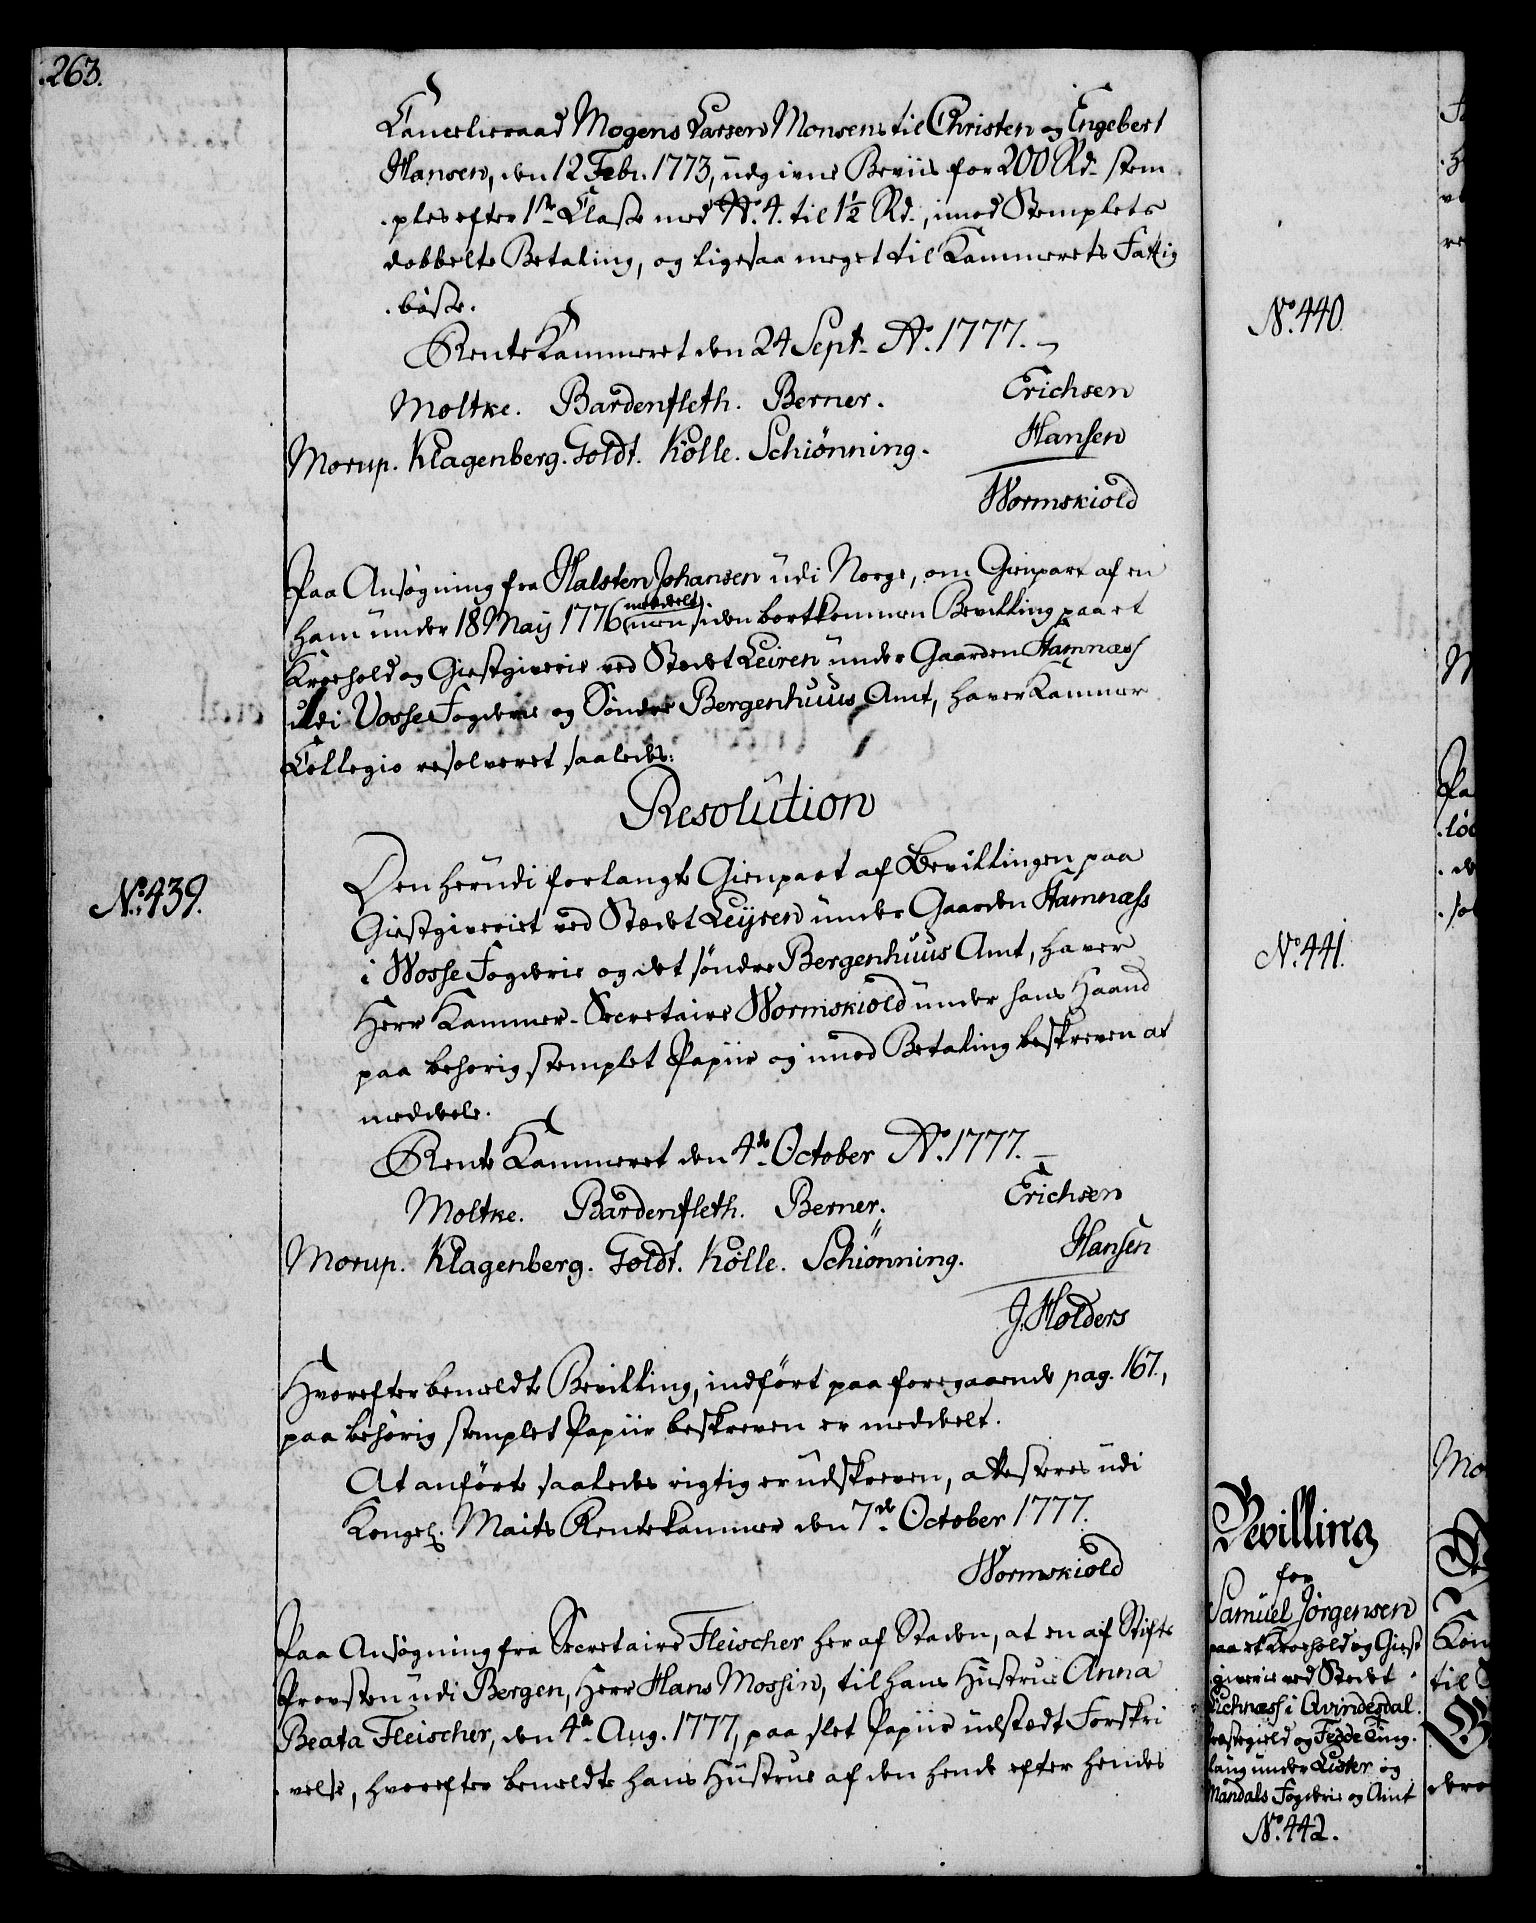 263.
Cancelieraad Mogens Larsen Monsens til Christen og Engebert
Hansen, den 12 Febr. 1773, udgivne Beviis for 200 Rd. stem
ples efter 1ste Classe med No. 4. til 1½ Rd., imod Stemplets
dobbelte Betaling, og ligesaa meget til Kammerets Fattig
bösse.
RenteKammeret den 24 Sept. Ao. 1777.
Moltke. Bardenfleth. Berner. Erichsen
Morup. Klagenberg. Goldt. Kölle. Schiønning. Hansen
Wormskiold
Paa Ansøgning fra Halsten Johansen udi Norge, om Gienpart af en
ham under 18 Maij 1776 meddeelt, men siden bortkommen Bevilling paa et
Kroehold og Giestgiverie ved Stædet Leiren under Gaarden Hamnæss
udi Vosse Fogderie og Söndre Bergenhuus Amt, haver Kammer
Collegio resolveret saaledes:
Resolution
No. 439.
Den herudi forlangte Gienpart af Bevillingen paa
Giestgiveriet ved Stædet Leijren under Gaarden Hamnæss
i Wosse Fogderie og det söndre Bergenhuus Amt, haver
Herr Kammer-Secretaire Wormskiold under hans Haand
paa behörig stemplet Papiir og imod Betaling beskreven at
meddele.
Rente Kammeret den 4de October Ao. 1777.
Moltke. Bardenfleth. Berner. Erichsen
Morup. Klagenberg. Goldt. Kölle. Schiönning. Hansen
J. Holders
Hvorefter bemeldte Bevilling, indført paa foregaaende pag. 167.,
paa behörig stemplet Papiir beskreven er meddelt.
At anförte saaledes rigtig er udskreven, attesteres udi
Kongel. Maits Rentekammer den 7de October 1777.
Wormskiold
Paa Ansøgning fra Secretaire Fleischer her af Staden, at en af Stifts
Provsten udi Bergen, Herr Hans Mossin, til hans Hustrue Anna
Beata Fleischer, den 4de Aug. 1777, paa slet Papiir udstædt Forskri
velse, hvorefter bemeldte hans Hustrue af den hende efter hendes
No. 440.
No. 441.
Bevilling
for
Samuel Jørgensen
paa et Kroehold og Giest
giverie ved Stædet
i Qvindesdal
Præstegield og Fedde Ting
laug under Lister og
Mandals Fogderie og Amt
No. 442.